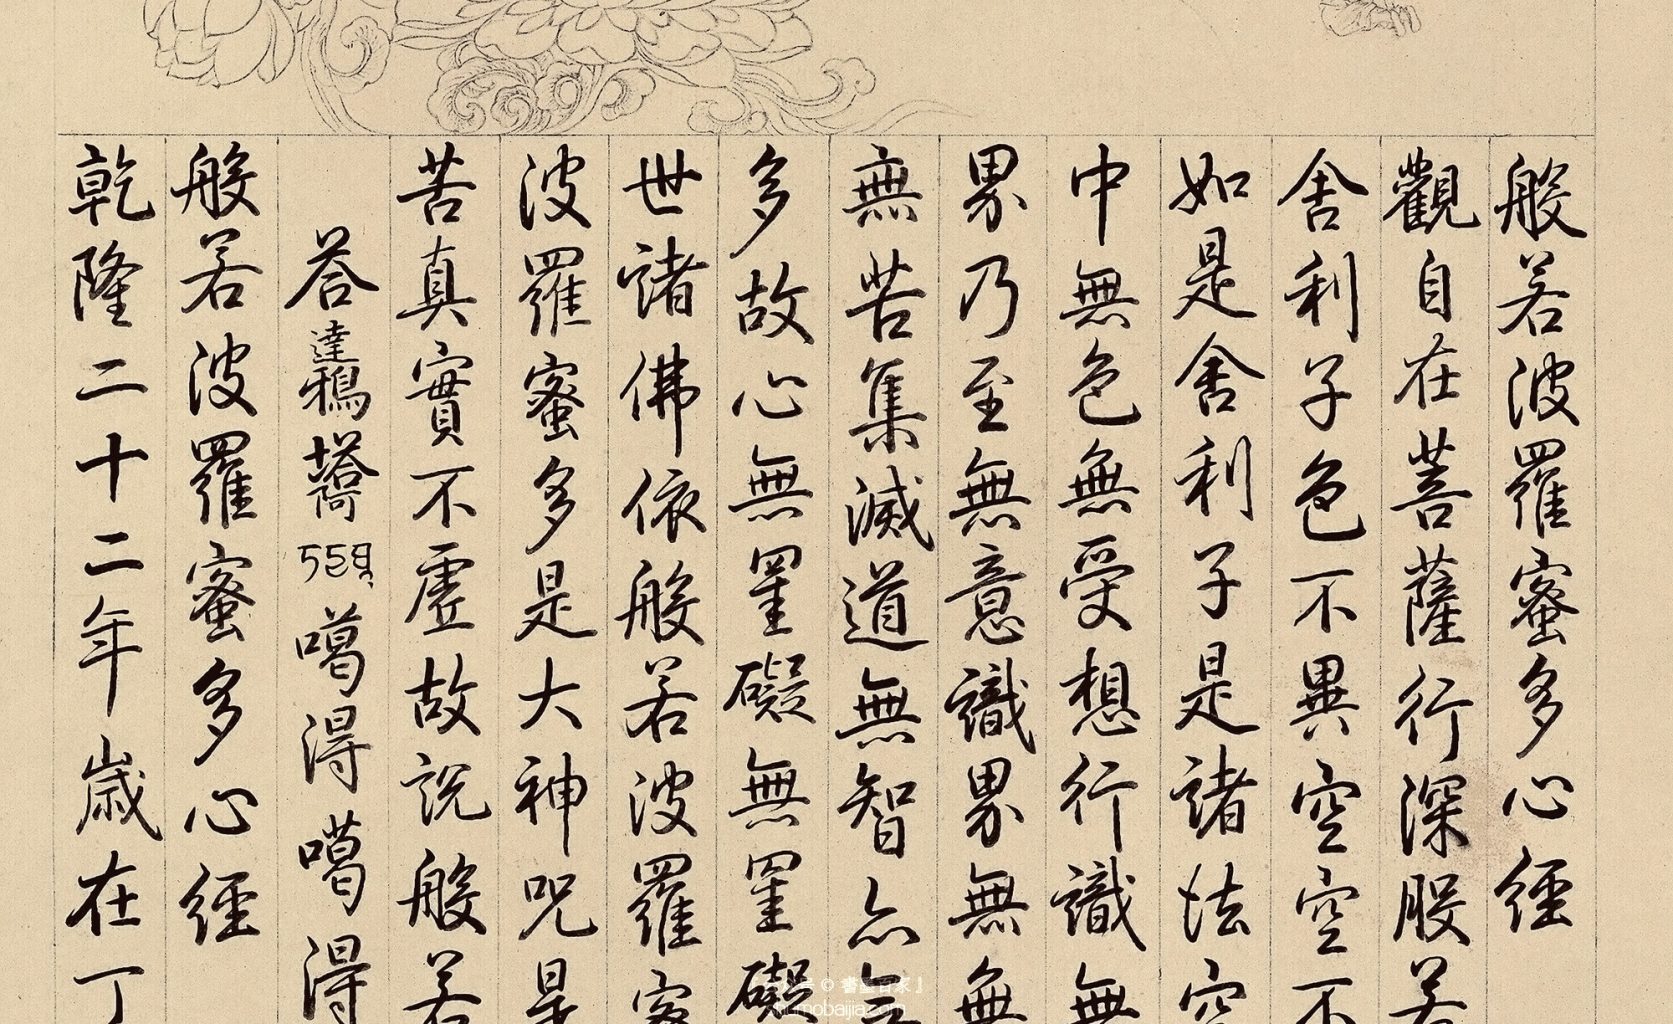 般若波羅蜜多心經
觀自在菩薩行深般若
舍利子色不異空空不
如是舍利子是諸法空
中無色無受想行識無
界乃至無意識界無無
無苦集滅道無智亦無
多故心無罣礙無罣礙
世諸佛依般若波羅蜜
波羅蜜多是大神咒是
苦真實不虛故說般若
荅達鴉塔噶得噶得
般若波羅蜜多心經
乾隆二十二年歲在丁